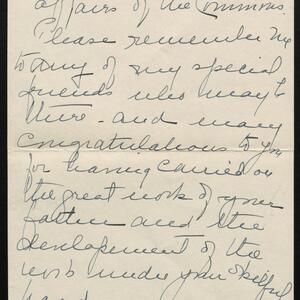 affairs of the Commons.
Please remember me
to any of my special
friends who may be
there - and many
congratulations to you
for having carried on
the great work of your
father and the
development of the
work under your skilful
hand